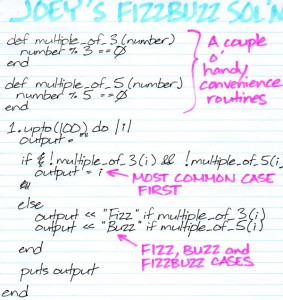 JOEY'S FIZZBUZZ SOL'N
def multiple_of_3(number)
number % 3 == 0
end
def multiple_of_5(number)
number % 5 == 0
end
A couple
o'
handy
convenience
routines
1.upto(100) do |i|
output = ""
if !multiple_of_3(i) && !multiple_of_5(i)
output = i
MOST COMMON CASE
FIRST
else
output << "Fizz" if multiple_of_3(i)
output << "Buzz" if multiple_of_5(i)
FIZZ, BUZZ and
FIZZBUZZ CASES
end
puts output
end